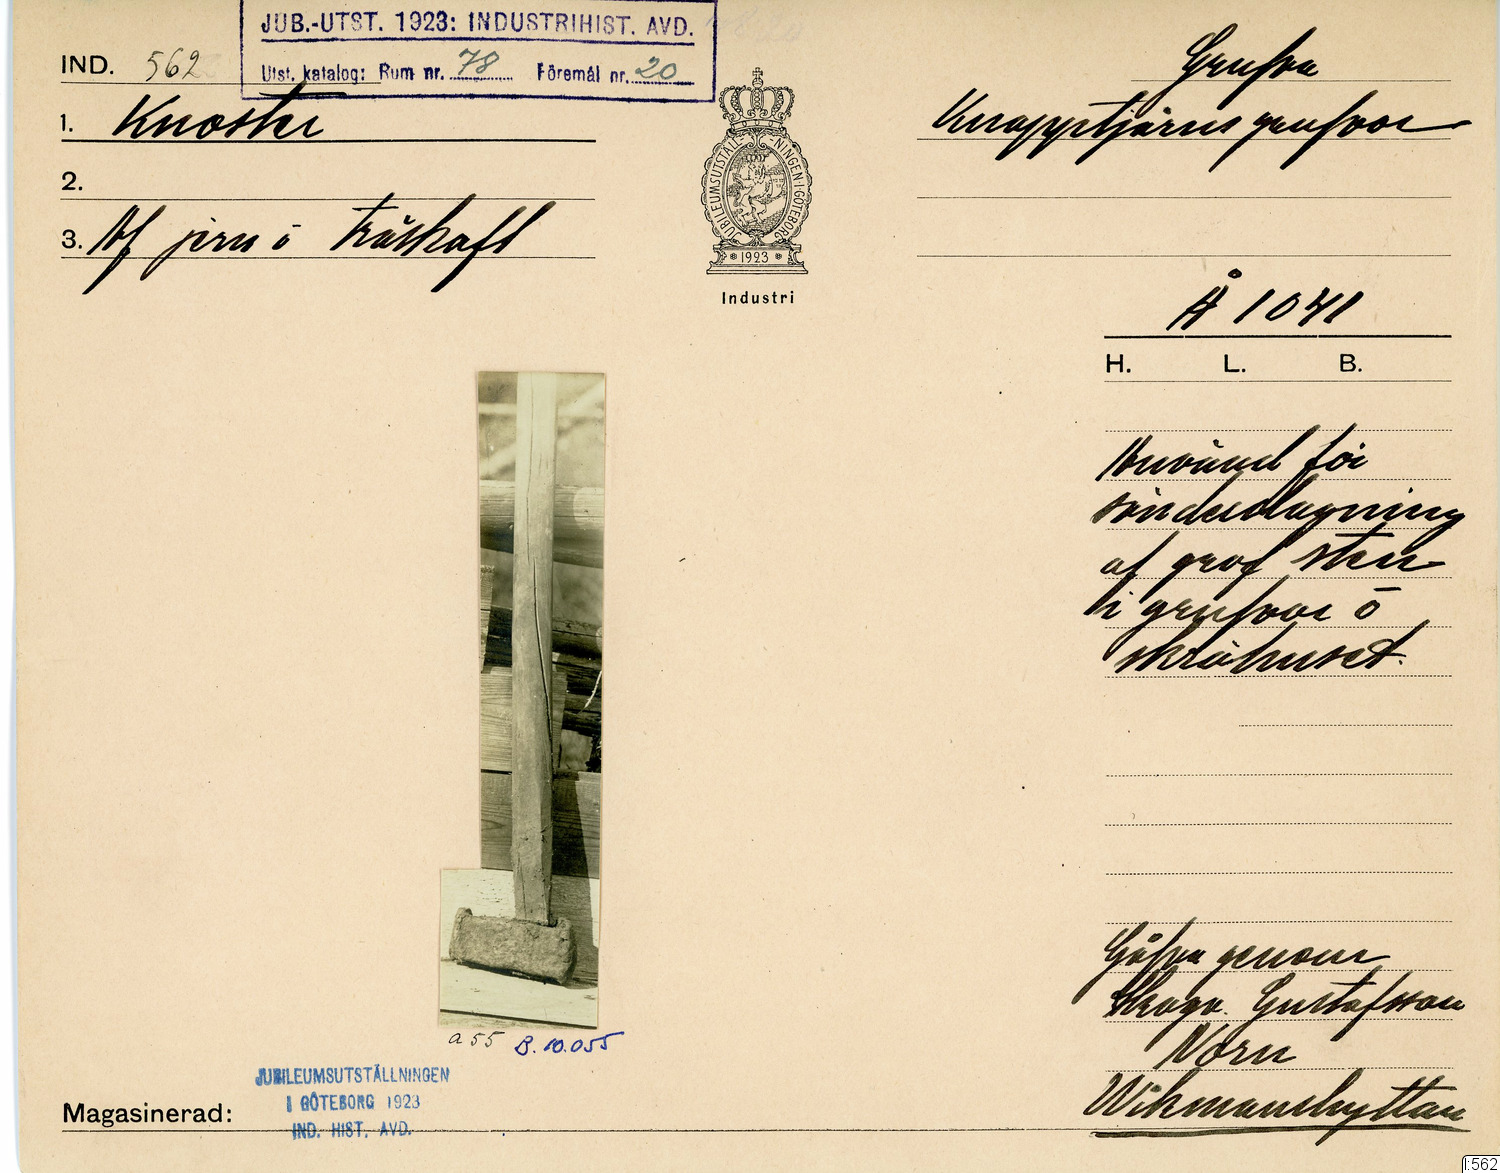 JUB.-UTST. 1923: INDUSTRIHIST. AVD.
Utst. katalog: Rum nr. 78 Föremål nr. 20
IND. 562
1. Knoster
2.
3. Af jern o träskaft
JUBILEUMSUTSTÄLLNINGEN·I·GÖTEBORG
1923
Industri
Grufva
Knappstjärns grufvor
Å 1041
H. L. B.
Använd för
sönderslagning
af grof sten
i grufvor o
skrädhuset.
Gåfva genom
Skogv. Gustafsson
Norn
Wikmanshyttan
a 55 B. 10.055
JUBILEUMSUTSTÄLLNINGEN
I GÖTEBORG 1923
IND. HIST. AVD.
Magasinerad:
I:562